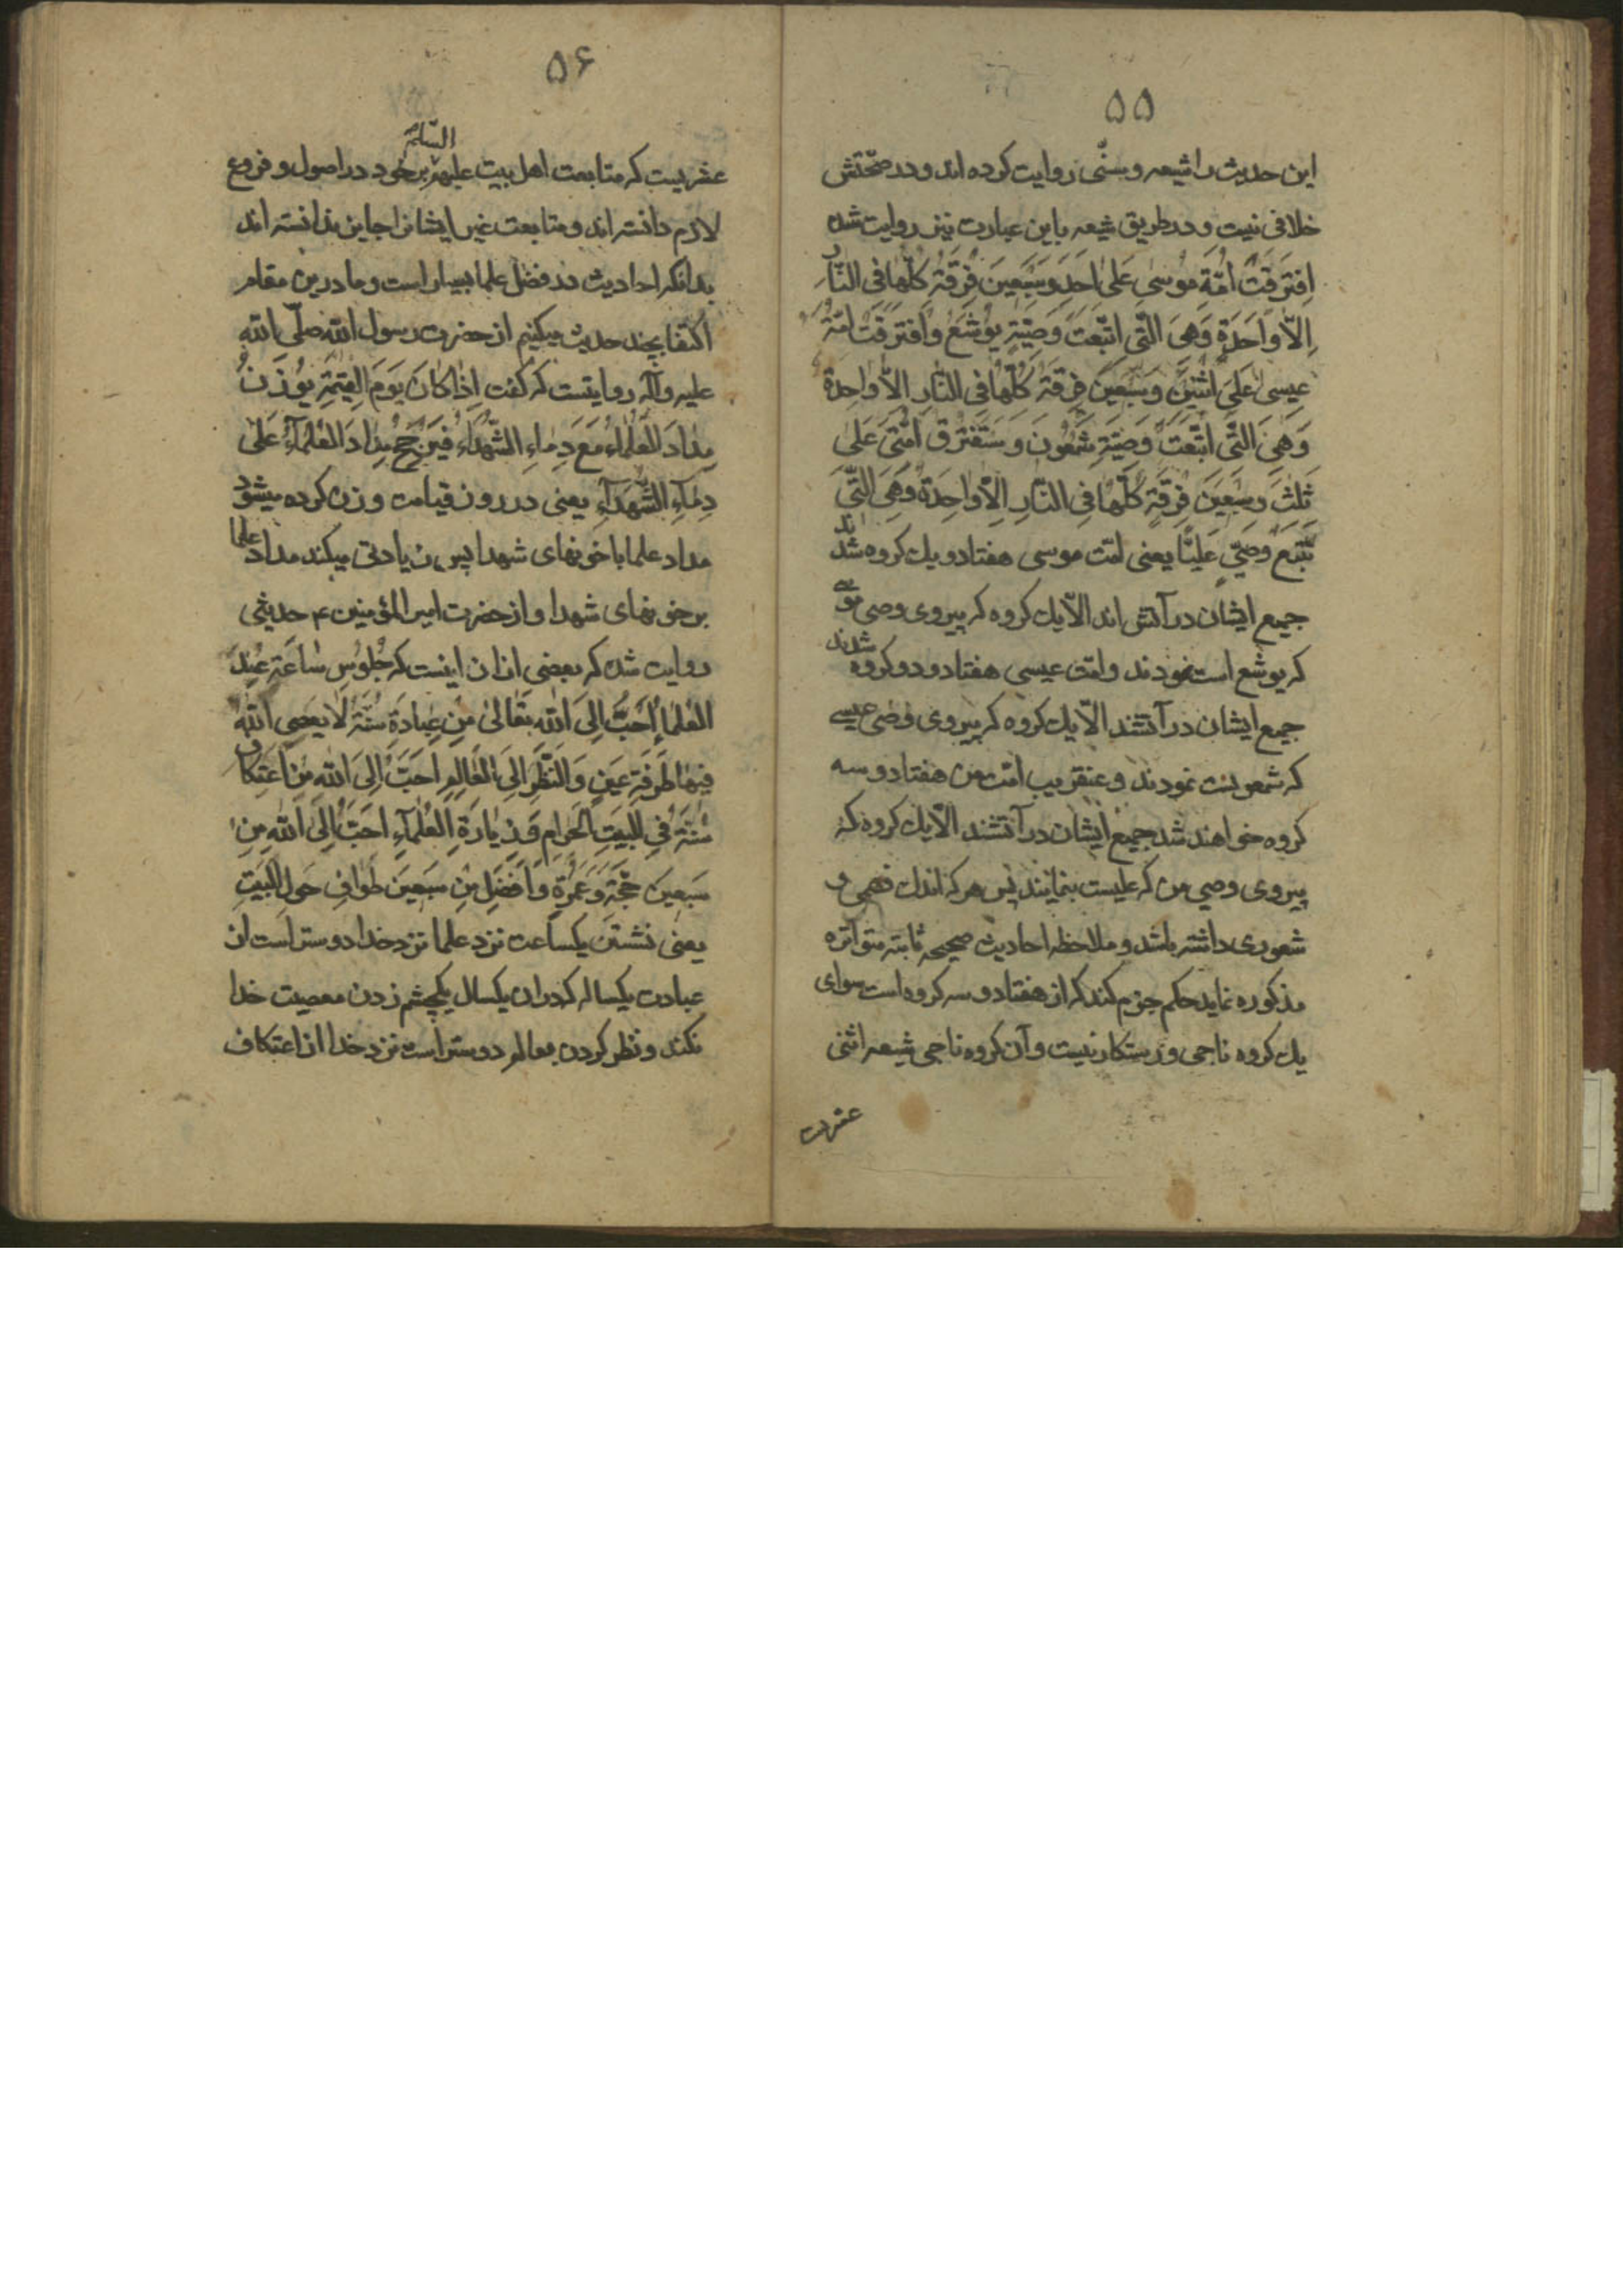 ۵۵
این حدیث را شیعه و سنّی روایت کرده اند و در صحّتش
خلافی نیست و در طریق شیعه باین عبارت نیز روایت شده
اِفتَرَقَتْ اُمَّةِ مُوسٰی عَلٰی اَحَدٍ وَسَبْعِینَ فِرْقَةٍ کُلّهٰا فی النّٰارِ
اِلاّ وٰاحَدَةٍ وَهِیَ الّتی اتّبعَت وَصِیّةِ یُوشَعْ وَافتَرَقَتْ اُمّةُ
عیسی عَلیَ اثنَینَ وَسَبعینَ فِرقَة کُلّهٰا فی النّارِ الاّ وٰاحِدة
وَهِیَ الّتی اتّبَعَتْ وَصِیّةِ شَمعُونَ وَ سَتَفتَرقُ اُمّتی عَلیٰ
ثَلٰثَ وسَبْعینَ فِرقَةٍ کُلّهٰا فِی النّارِ اِلاّ وٰاحِدَة وَهِیَ الّتی
تَتّبعُ وَصیّی عَلیّا یعنی امّت موسی هفتاد و یك کروه شدند
جمیع ایشان در آتش اند الاّ یك کروه که پیروی وصی موسی
که یوشع است نمودند و امّت عیسی هفتاد و دو کروه شدند
جمیع ایشان در آتشند الاّ یك کروه که پیروی وصی عیسی
که شمعونست نمودند و عنقریب امّت من هفتاد و سه
کروه خواهند شد جمیع ایشان در آتشند الاّ یك کروه که
پیروی وصی من که علیست بنمایند پس هر که اندك فهمی و
شعوری داشته باشد و ملاحظه احادیث صحیحه ثابته متواتره
مذکوره نماید حکم جزم کند که از هفتاد و سه کروه است سوای
یك کروه ناجی و رستکار نیست و آن کروه ناجی شیعه اثنی
۵۶
عشریست که متابعت اهل بیت علیهم السّلم بر خود در اصول و فروع
لازم دانسته اند و متابعت غیر ایشانرا جایز ندانسته اند
بدانکه احادیث در فضل علما بسیار است و ما درین مقام
اکتفا بچند حدیث میکنیم از حضرت رسول اللّه صلّی اللّه
علیه و آله روایتست که کفت اِذٰا کٰانَ یَومَ القِیٰمَةِ یُوزَنُ
مِدٰادَ العُلَمٰاءِ مَعَ دِمٰاءِ الشّهَدٰاءِ فَیَرجَحُ مِدٰادَ العُلَمٰآءِ عَلٰی
دِمٰآءِ الشّهَدٰآءِ یعنی در روز قیامت وزن کرده میشود
مداد علما با خونهای شهدا پس زیادتی میکند مداد علما
بر خونهای شهدا و از حضرت امیر المؤمنین ۴ حدیثی
روایت شده که بعضی از ان اینست که جُلُوسِ سٰاعَةٍ عِندَ
العُلَمٰاءِ اَحَبُّ اِلیَ اللّهِ تَعٰالیٰ مِن عِبٰادَةِ سَنَة لٰا یعصی اللّه
فیهٰا طَرفَةِ عَینٍ وَالنّظَرِ اِلَی العٰالِمِ اَحَبّ اِلَی اللّه مِن اعتِکافِ
سَنَةٍ فِی البَیتِ الحَرٰامِ وَ زِیٰارَةِ العُلَمٰآءِ اَحَبّ اِلَی اللّهِ مِن
سَبعینَ حَجّةٍ وَعُمْرَةٍ وَاَفضَلِ مِن سَبعینَ طَوٰافٍ حَولَ البَیتِ
یعنی نشستن یکساعت نزد علما نزد خدا دوستر است از
عبادت یکساله که در ان یکسال یکچشم زدن معصیت خدا
نکند و نظر کردن بعالم دوستر است نزد خدا از اعتکاف